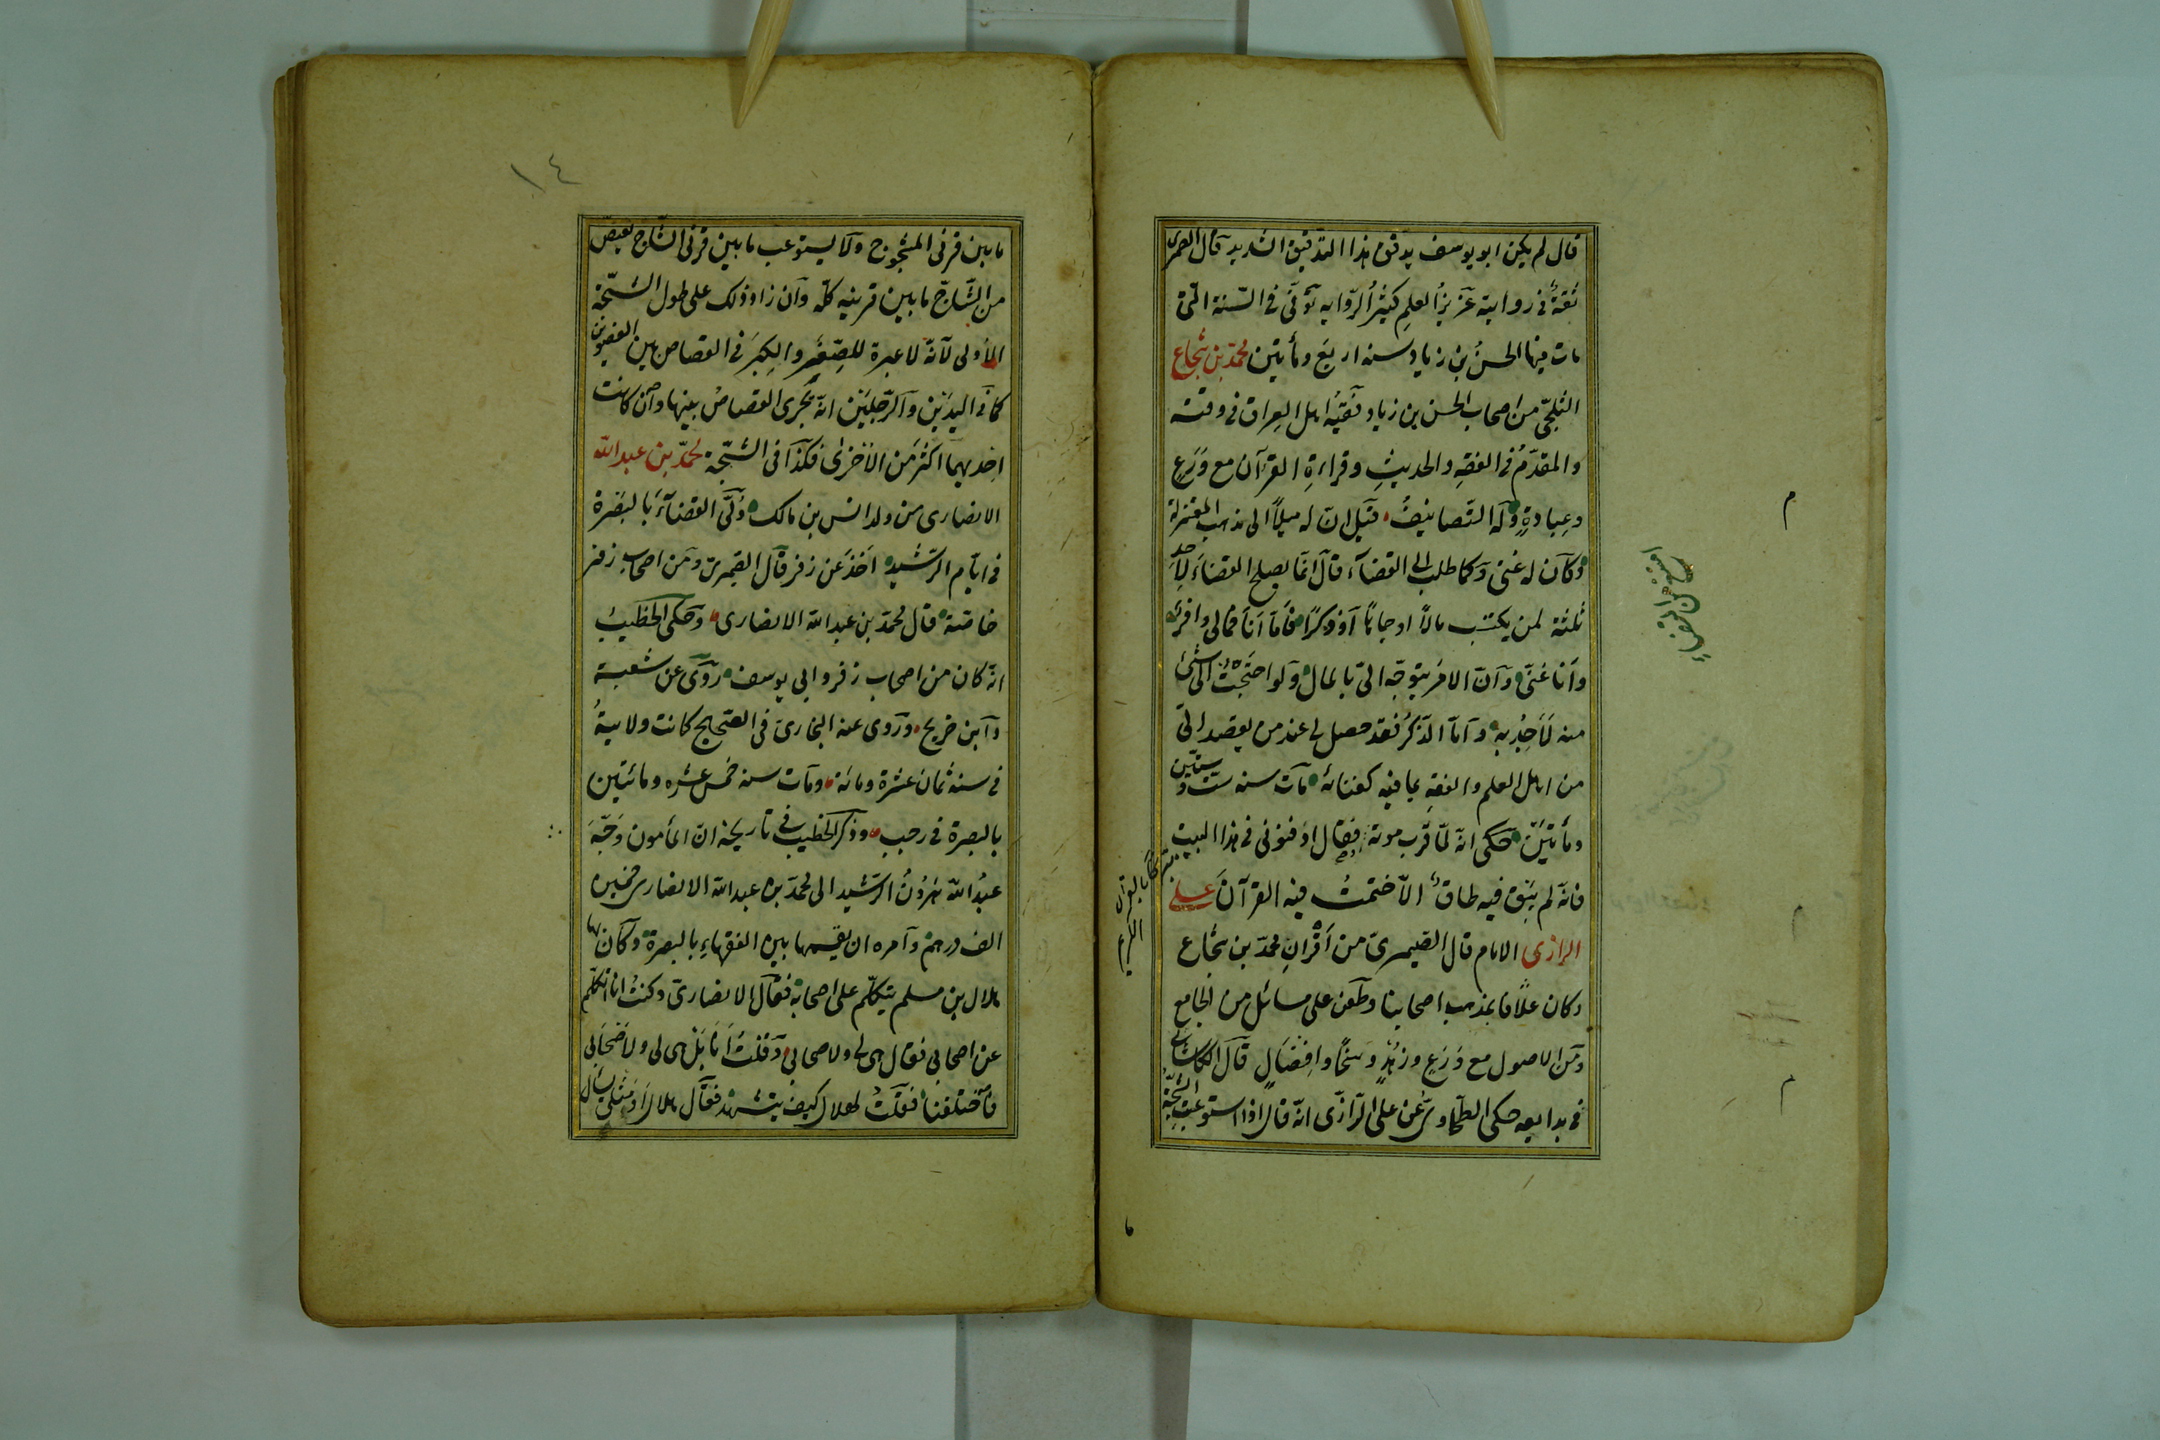 قال لم يكن ابو يوسف يدقق هذا التدقيق الشديد قال الصمرى
ثقة فى روايته عزيز العلم كثير الرواية توفى فى السنة التى
مات فيها الحسن بن زياد سنه اربع ومأتين محمد بن شجاع
الثلجى من اصحاب الحسن بن زياد فقيه اهل العراق فى وقته
والمقدم فى الفقه والحديث وقراءة القرآن مع ورع
وعبادة وله التصانيف قيل ان له ميلا الى مذهب المعتزلة
وكان له غنى وكما طلب الى القضاء قال انما يصلح القضاء لاحد
ثلثة لمن يكتسب مالا او جاها او ذكرا فاما انا فمالى وافر
وانا غنى وان الامر يتوجه الى بالمال ولو احتجت الى شئ
منه لاخذ به واما الذكر فقد حصل لى عند من يقصد الى
من اهل العلم والفقه بما فيه كفناية مات سنه ست وستين
ومأتين حكى انه لما قرب موته فقال ادفنونى فى هذا البيت
فانه لم يبق فيه طاق الا ختمت فيه القرآن على
الرازى الامام قال الصيمرى من اقران محمد بن شجاع
وكان علافا بمذهب اصحابنا وطعن على مسائل من الجامع
ومن الاصول مع ورع وزهد وسخا وافضال قال الكاسانى
فى بدايعه حكى الطحاوى عن على الرازى انه قال اذا استوعبت الشجة
م
م
م
١٤
ما بين قرنى المشجوج ولا يستوعب ما بين قرنى الشاج يقتص
من الشاج ما بين قرنيه كله وان زاد ذلك على طول الشجة
الأولى لانه لا عبرة للصغر والكبر فى القصاص بين العضوين
كما فى اليدين والرجلين انه يجرى القصاص بينها وان كانت
احديهما اكثر من الاخرى فكذا فى الشجة محمد بن عبد الله
الانصارى من ولد انس بن مالك ولى القضاء بالبصرة
فى ايام الرشيد اخذ عن زفر قال الصيمرى ومن اصحاب زفر
خاصة قال محمد بن عبد الله الانصارى وحكى الخطيب
انه كان من اصحاب زفر وابى يوسف روى عن شعبة
وابن جريج وروى عنه البخارى فى الصحيح كانت ولايته
فى سنة ثمان عشرة ومائة ومات سنه خمس عشره ومائتين
بالبصرة فى رجب وذكر الخطيب فى تاريخه ان المأمون وجه
عبد الله هرون الرشيد الى محمد بن عبد الله الانصارى خمسين
الف درهم وامره ان يقسمها بين الفقهاء بالبصرة وكان بها
هلال بن مسلم يتكلم على اصحابه فقال الانصارى وكنت انا اتكلم
عن اصحابى فقال هى لى ولاصحابى وقلت انا بل هى لى ولاصحابى
فاختلفنا فقلت لهلال كيف تتشهد فقال هلال او مثلى يسأل